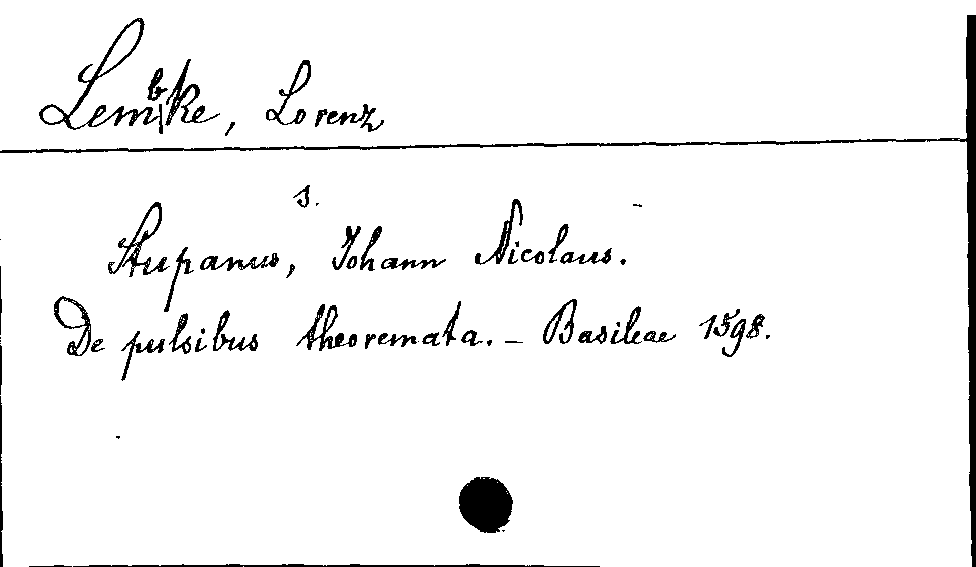 Lembke, Lorenz
s.
Stupanus, Johann Nicolaus.
De pulsibus theoremata. – Basileae 1598.